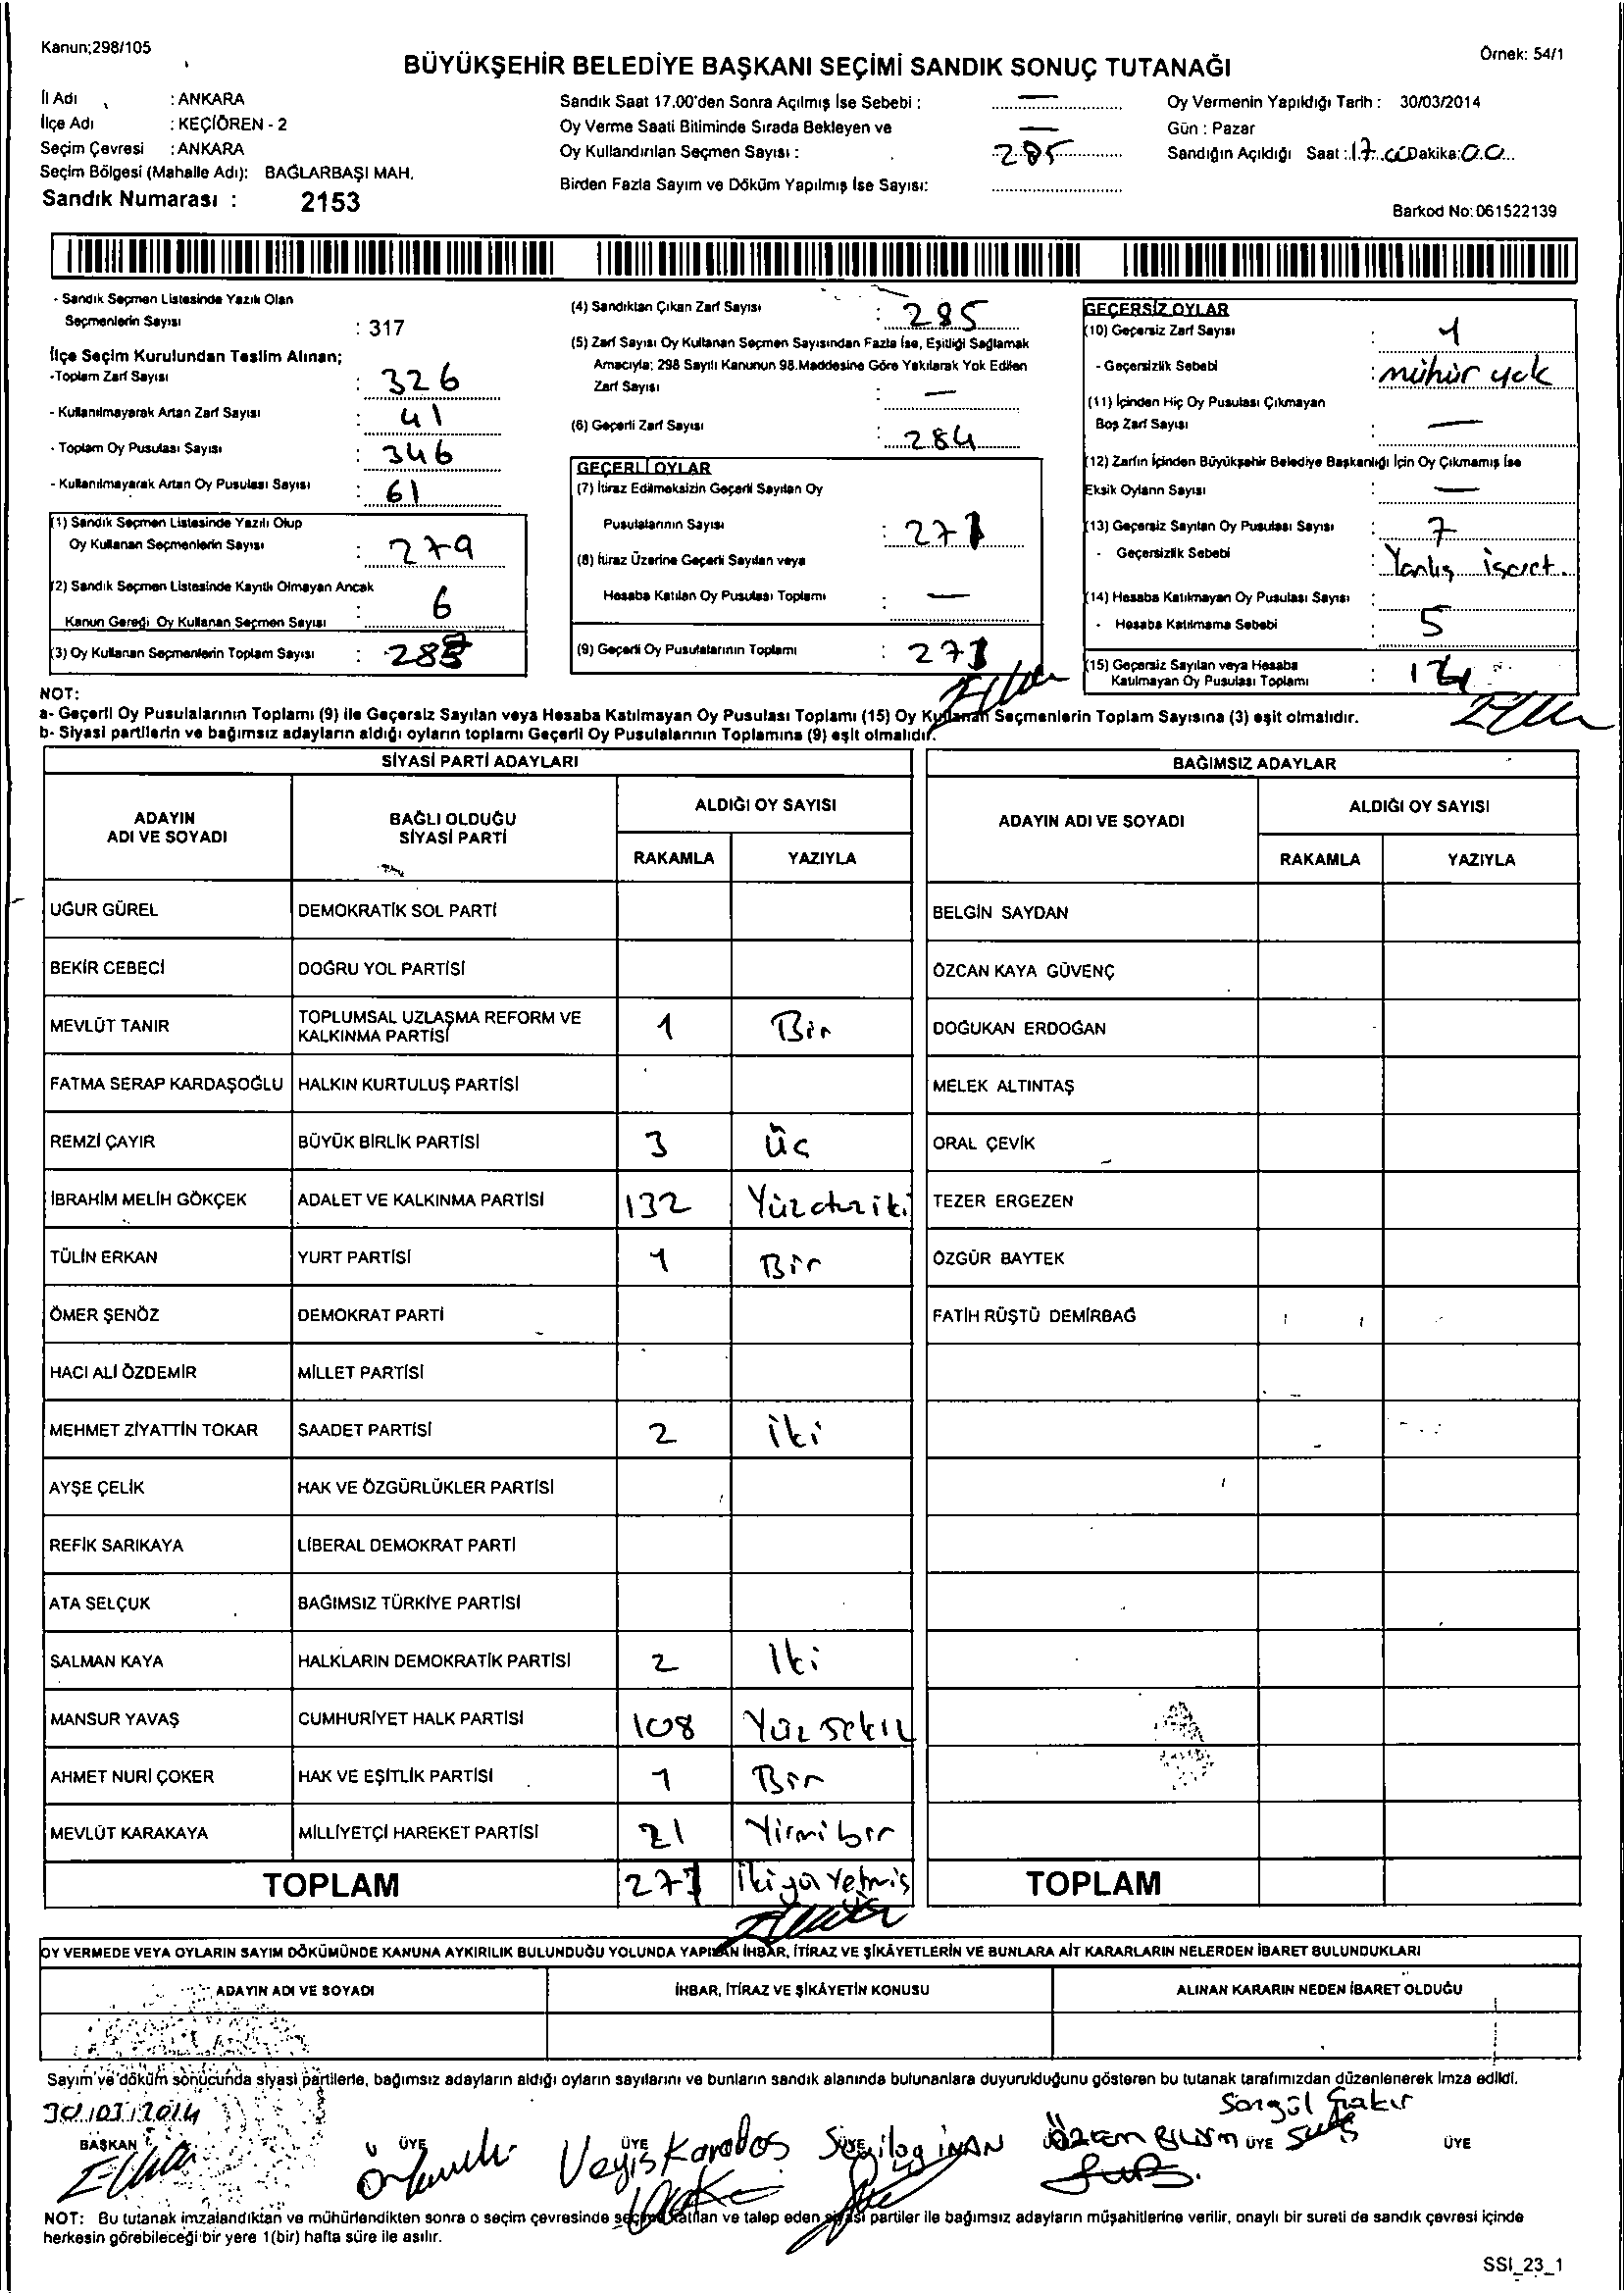 Kanun;298/105
Örnek: 54/1
BÜYÜKŞEHİR BELEDİYE BAŞKANI SEÇİMİ SANDIK SONUÇ TUTANAĞI
İl Adı : ANKARA
İlçe Adı : KEÇİÖREN - 2
Seçim Çevresi : ANKARA
Seçim Bölgesi (Mahalle Adı): BAĞLARBAŞI MAH.
Sandık Numarası : 2153
Sandık Saat 17.00'den Sonra Açılmış İse Sebebi : —
Oy Verme Saati Bitiminde Sırada Bekleyen ve —
Oy Kullandırılan Seçmen Sayısı : 285
Birden Fazla Sayım ve Döküm Yapılmış İse Sayısı:
Oy Vermenin Yapıldığı Tarih : 30/03/2014
Gün : Pazar
Sandığın Açıldığı Saat : 17.00 Dakika: 00
Barkod No: 061522139
- Sandık Seçmen Listesinde Yazılı Olan
Seçmenlerin Sayısı : 317
İlçe Seçim Kurulundan Teslim Alınan;
-Toplam Zarf Sayısı : 326
- Kullanılmayarak Artan Zarf Sayısı : 41
- Toplam Oy Pusulası Sayısı : 346
- Kullanılmayarak Artan Oy Pusulası Sayısı : 61
(1) Sandık Seçmen Listesinde Yazılı Olup
Oy Kullanan Seçmenlerin Sayısı : 279
(2) Sandık Seçmen Listesinde Kayıtlı Olmayan Ancak
Kanun Gereği Oy Kullanan Seçmen Sayısı : 6
(3) Oy Kullanan Seçmenlerin Toplam Sayısı : 285
(4) Sandıktan Çıkan Zarf Sayısı : 285
(5) Zarf Sayısı Oy Kullanan Seçmen Sayısından Fazla İse, Eşitliği Sağlamak
Amacıyla; 298 Sayılı Kanunun 98.Maddesine Göre Yakılarak Yok Edilen
Zarf Sayısı : —
(6) Geçerli Zarf Sayısı : 284
GEÇERLİ OYLAR
(7) İtiraz Edilmeksizin Geçerli Sayılan Oy
Pusulalarının Sayısı : 271
(8) İtiraz Üzerine Geçerli Sayılan veya
Hesaba Katılan Oy Pusulası Toplamı : —
(9) Geçerli Oy Pusulalarının Toplamı : 271
GEÇERSİZ OYLAR
(10) Geçersiz Zarf Sayısı : 1
- Geçersizlik Sebebi : mühür yok
(11) İçinden Hiç Oy Pusulası Çıkmayan
Boş Zarf Sayısı : —
(12) Zarfın İçinden Büyükşehir Belediye Başkanlığı İçin Oy Çıkmamış İse
Eksik Oyların Sayısı : —
(13) Geçersiz Sayılan Oy Pusulası Sayısı : 7
- Geçersizlik Sebebi : Yanlış işaret
(14) Hesaba Katılmayan Oy Pusulası Sayısı :
- Hesaba Katılmama Sebebi : 5
(15) Geçersiz Sayılan veya Hesaba
Katılmayan Oy Pusulası Toplamı : 14
NOT:
a- Geçerli Oy Pusulalarının Toplamı (9) ile Geçersiz Sayılan veya Hesaba Katılmayan Oy Pusulası Toplamı (15) Oy Kullanan Seçmenlerin Toplam Sayısına (3) eşit olmalıdır.
b- Siyasi partilerin ve bağımsız adayların aldığı oyların toplamı Geçerli Oy Pusulalarının Toplamına (9) eşit olmalıdır.
SİYASİ PARTİ ADAYLARI
ADAYIN ADI VE SOYADI BAĞLI OLDUĞU SİYASİ PARTİ ALDIĞI OY SAYISI
RAKAMLA YAZIYLA
UĞUR GÜREL DEMOKRATİK SOL PARTİ
BEKİR CEBECİ DOĞRU YOL PARTİSİ
MEVLÜT TANIR TOPLUMSAL UZLAŞMA REFORM VE KALKINMA PARTİSİ 1 Bir
FATMA SERAP KARDAŞOĞLU HALKIN KURTULUŞ PARTİSİ
REMZİ ÇAYIR BÜYÜK BİRLİK PARTİSİ 3 üç
İBRAHİM MELİH GÖKÇEK ADALET VE KALKINMA PARTİSİ 132 Yüzotuziki
TÜLİN ERKAN YURT PARTİSİ 1 Bir
ÖMER ŞENÖZ DEMOKRAT PARTİ
HACI ALİ ÖZDEMİR MİLLET PARTİSİ
MEHMET ZİYATTİN TOKAR SAADET PARTİSİ 2 iki
AYŞE ÇELİK HAK VE ÖZGÜRLÜKLER PARTİSİ
REFİK SARIKAYA LİBERAL DEMOKRAT PARTİ
ATA SELÇUK BAĞIMSIZ TÜRKİYE PARTİSİ
SALMAN KAYA HALKLARIN DEMOKRATİK PARTİSİ 2 Iki
MANSUR YAVAŞ CUMHURİYET HALK PARTİSİ 108 Yüz sekiz
AHMET NURİ ÇOKER HAK VE EŞİTLİK PARTİSİ 1 Bir
MEVLÜT KARAKAYA MİLLİYETÇİ HAREKET PARTİSİ 21 Yirmibir
TOPLAM 271 İkiyüz Yetmiş
BAĞIMSIZ ADAYLAR
ADAYIN ADI VE SOYADI ALDIĞI OY SAYISI
RAKAMLA YAZIYLA
BELGİN SAYDAN
ÖZCAN KAYA GÜVENÇ
DOĞUKAN ERDOĞAN
MELEK ALTINTAŞ
ORAL ÇEVİK
TEZER ERGEZEN
ÖZGÜR BAYTEK
FATİH RÜŞTÜ DEMİRBAĞ
TOPLAM
OY VERMEDE VEYA OYLARIN SAYIM DÖKÜMÜNDE KANUNA AYKIRILIK BULUNDUĞU YOLUNDA YAPILAN İHBAR, İTİRAZ VE ŞİKÂYETLERİN VE BUNLARA AİT KARARLARIN NELERDEN İBARET BULUNDUKLARI
ADAYIN ADI VE SOYADI İHBAR, İTİRAZ VE ŞİKÂYETİN KONUSU ALINAN KARARIN NEDEN İBARET OLDUĞU
Sayım ve döküm sonucunda siyasi partilerle, bağımsız adayların aldığı oyların sayılarını ve bunların sandık alanında bulunanlara duyurulduğunu gösteren bu tutanak tarafımızdan düzenlenerek imza edildi.
30/03/2014
BAŞKAN ÜYE ÜYE Veyis Karabaş ÜYE İNAN ÜYE ÜYE ÜYE
NOT: Bu tutanak imzalandıktan ve mühürlendikten sonra o seçim çevresinde seçime katılan ve talep eden siyasi partiler ile bağımsız adayların müşahitlerine verilir, onaylı bir sureti de sandık çevresi içinde
herkesin görebileceği bir yere 1(bir) hafta süre ile asılır.
SSI_23_1